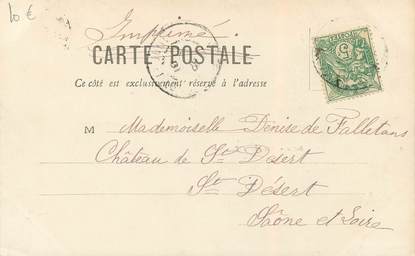 10 €
Imprimé
CARTE POSTALE
Ce côté est exclusivement réservé à l'adresse
M Mademoiselle Denise de Falletans
Château de St Désert
St Désert
Saône et Loire
5